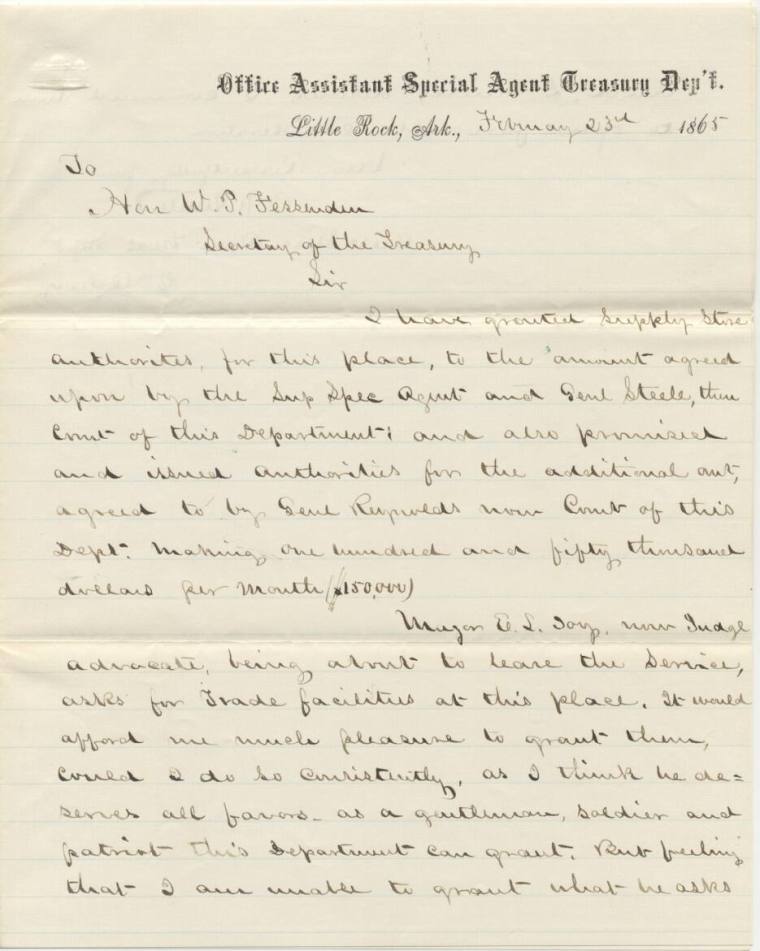 Office Assistant Special Agent Treasury Dep't.
Little Rock, Ark., February 23d 1865
To
Hon W. P. Fessenden
Secretary of the Treasury
Sir
I have granted Supply Store
authorites, for this place, to the amount agreed
upon by the Sup Spec Agent and Genl Steele, then
Comt of this Department; and also promised
and issued authorities for the additional amt,
agreed to by Genl Reynolds now Comt of this
Dept. making one hundred and fifty thousand
dollars per month ($150,000)
Major E. L. Joy, now Judge
advocate, being about to leave the Service,
asks for Trade facilities at this place. It would
afford me much pleasure to grant them,
could I do so consistently, as I think he de=
serves all favors - as a gentleman, soldier and
patriot this Department can grant. But feeling
that I am unable to grant what he asks